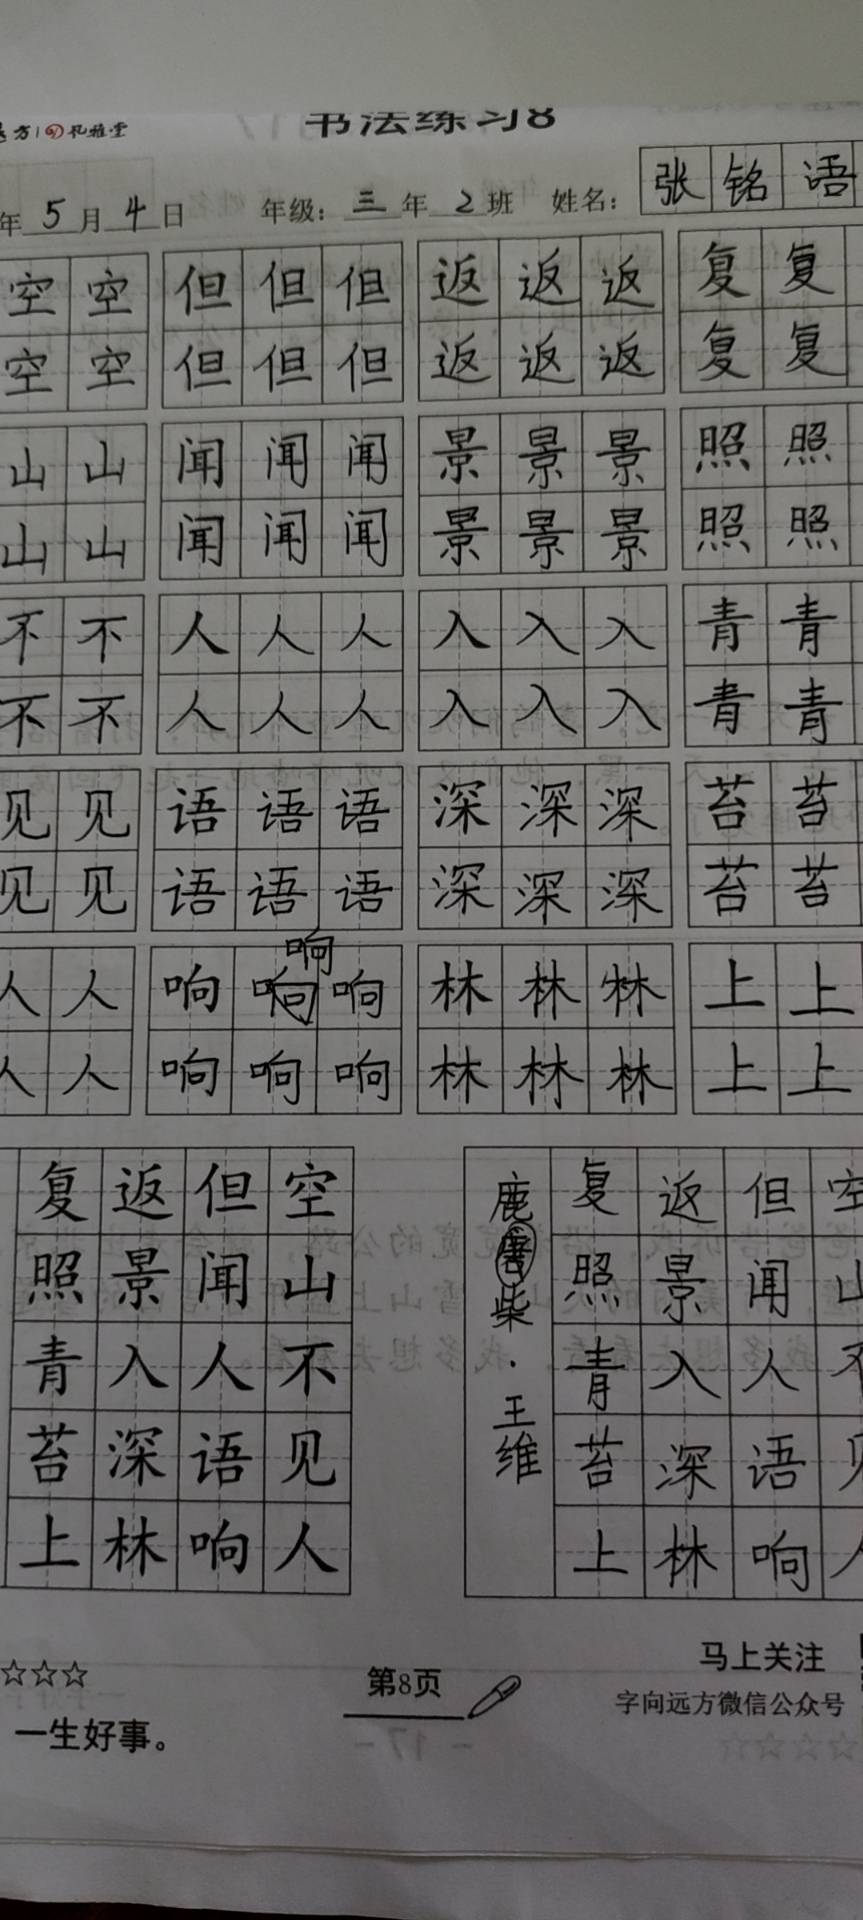 书法练习8
年5月4日 年级：三年2班 姓名：张铭语
空空 但但但 返返返 复复
空空 但但但 返返返 复复
山山 闻闻闻 景景景 照照
山山 闻闻闻 景景景 照照
不不 人人人 入入入 青青
不不 人人人 入入入 青青
见见 语语语 深深深 苔苔
见见 语语语 深深深 苔苔
响
人人 响响响 林林林 上上
人人 响响响 林林林 上上
空山不见人
但闻人语响
返景入深林
复照青苔上
空山不见人
但闻人语响
返景入深林
复照青苔上
鹿柴·王维
☆☆☆
第8页
马上关注
字向远方微信公众号
一生好事。